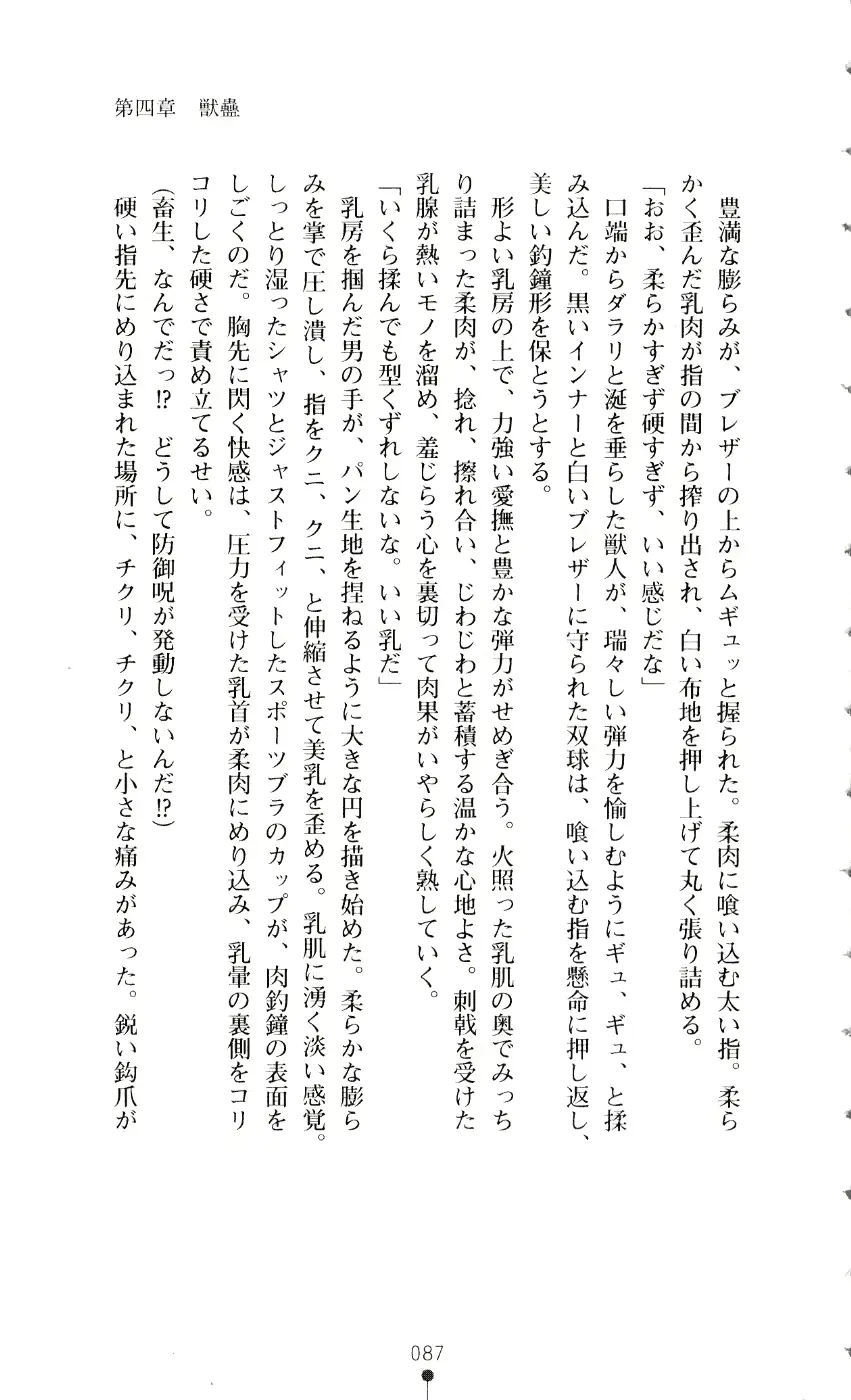 第四章　獣蠱
豊満な膨らみが、ブレザーの上からムギュッと握られた。柔肉に喰い込む太い指。柔ら
かく歪んだ乳肉が指の間から搾り出され、白い布地を押し上げて丸く張り詰める。
「おお、柔らかすぎず硬すぎず、いい感じだな」
口端からダラリと涎を垂らした獣人が、瑞々しい弾力を愉しむようにギュ、ギュ、と揉
み込んだ。黒いインナーと白いブレザーに守られた双球は、喰い込む指を懸命に押し返し、
美しい釣鐘形を保とうとする。
形よい乳房の上で、力強い愛撫と豊かな弾力がせめぎ合う。火照った乳肌の奥でみっち
り詰まった柔肉が、捻れ、擦れ合い、じわじわと蓄積する温かな心地よさ。刺戟を受けた
乳腺が熱いモノを溜め、羞じらう心を裏切って肉果がいやらしく熟していく。
「いくら揉んでも型くずれしないな。いい乳だ」
乳房を掴んだ男の手が、パン生地を捏ねるように大きな円を描き始めた。柔らかな膨ら
みを掌で圧し潰し、指をクニ、クニ、と伸縮させて美乳を歪める。乳肌に湧く淡い感覚。
しっとり湿ったシャツとジャストフィットしたスポーツブラのカップが、肉釣鐘の表面を
しごくのだ。胸先に閃く快感は、圧力を受けた乳首が柔肉にめり込み、乳暈の裏側をコリ
コリした硬さで責め立てるせい。
（畜生、なんでだっ!?　どうして防御呪が発動しないんだ!?）
硬い指先にめり込まれた場所に、チクリ、チクリ、と小さな痛みがあった。鋭い鈎爪が
087